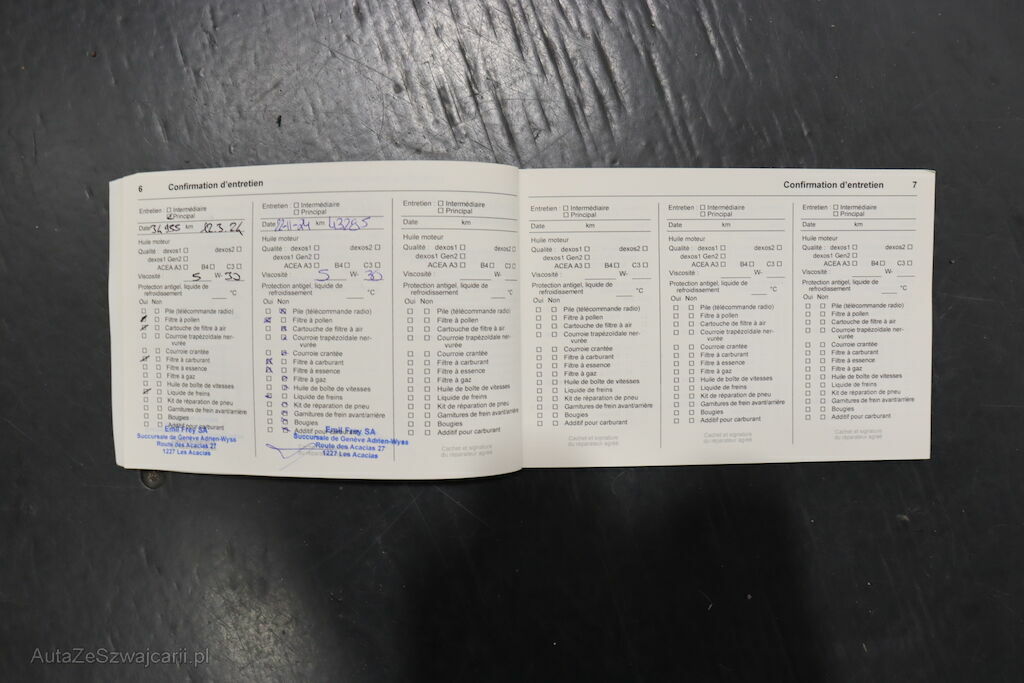 6 Confirmation d'entretien
Entretien : Intermédiaire
Principal
Date 34 955 km 12.3.24
Huile moteur
Qualité : dexos1 dexos2
dexos1 Gen2
ACEA A3 B4 C3
Viscosité : 5 W- 30
Protection antigel, liquide de
refroidissement °C
Oui Non
Pile (télécommande radio)
Filtre à pollen
Cartouche de filtre à air
Courroie trapézoïdale ner-
vurée
Courroie crantée
Filtre à carburant
Filtre à essence
Filtre à gaz
Huile de boîte de vitesses
Liquide de freins
Kit de réparation de pneu
Garnitures de frein avant/arrière
Bougies
Additif pour carburant
Emil Frey SA
Succursale de Genève Adrien-Wyss
Route des Acacias 27
1227 Les Acacias
Entretien : Intermédiaire
Principal
Date 22-11-24 km 43285
Huile moteur
Qualité : dexos1 dexos2
dexos1 Gen2
ACEA A3 B4 C3
Viscosité : 5 W- 30
Protection antigel, liquide de
refroidissement °C
Oui Non
Pile (télécommande radio)
Filtre à pollen
Cartouche de filtre à air
Courroie trapézoïdale ner-
vurée
Courroie crantée
Filtre à carburant
Filtre à essence
Filtre à gaz
Huile de boîte de vitesses
Liquide de freins
Kit de réparation de pneu
Garnitures de frein avant/arrière
Bougies
Additif pour carburant
Emil Frey SA
Succursale de Genève Adrien-Wyss
Route des Acacias 27
1227 Les Acacias
Entretien : Intermédiaire
Principal
Date km
Huile moteur
Qualité : dexos1 dexos2
dexos1 Gen2
ACEA A3 B4 C3
Viscosité : W-
Protection antigel, liquide de
refroidissement °C
Oui Non
Pile (télécommande radio)
Filtre à pollen
Cartouche de filtre à air
Courroie trapézoïdale ner-
vurée
Courroie crantée
Filtre à carburant
Filtre à essence
Filtre à gaz
Huile de boîte de vitesses
Liquide de freins
Kit de réparation de pneu
Garnitures de frein avant/arrière
Bougies
Additif pour carburant
Cachet et signature
du réparateur agréé
Confirmation d'entretien 7
Entretien : Intermédiaire
Principal
Date km
Huile moteur
Qualité : dexos1 dexos2
dexos1 Gen2
ACEA A3 B4 C3
Viscosité : W-
Protection antigel, liquide de
refroidissement °C
Oui Non
Pile (télécommande radio)
Filtre à pollen
Cartouche de filtre à air
Courroie trapézoïdale ner-
vurée
Courroie crantée
Filtre à carburant
Filtre à essence
Filtre à gaz
Huile de boîte de vitesses
Liquide de freins
Kit de réparation de pneu
Garnitures de frein avant/arrière
Bougies
Additif pour carburant
Cachet et signature
du réparateur agréé
Entretien : Intermédiaire
Principal
Date km
Huile moteur
Qualité : dexos1 dexos2
dexos1 Gen2
ACEA A3 B4 C3
Viscosité : W-
Protection antigel, liquide de
refroidissement °C
Oui Non
Pile (télécommande radio)
Filtre à pollen
Cartouche de filtre à air
Courroie trapézoïdale ner-
vurée
Courroie crantée
Filtre à carburant
Filtre à essence
Filtre à gaz
Huile de boîte de vitesses
Liquide de freins
Kit de réparation de pneu
Garnitures de frein avant/arrière
Bougies
Additif pour carburant
Cachet et signature
du réparateur agréé
Entretien : Intermédiaire
Principal
Date km
Huile moteur
Qualité : dexos1 dexos2
dexos1 Gen2
ACEA A3 B4 C3
Viscosité : W-
Protection antigel, liquide de
refroidissement °C
Oui Non
Pile (télécommande radio)
Filtre à pollen
Cartouche de filtre à air
Courroie trapézoïdale ner-
vurée
Courroie crantée
Filtre à carburant
Filtre à essence
Filtre à gaz
Huile de boîte de vitesses
Liquide de freins
Kit de réparation de pneu
Garnitures de frein avant/arrière
Bougies
Additif pour carburant
Cachet et signature
du réparateur agréé
AutaZeSzwajcarii.pl